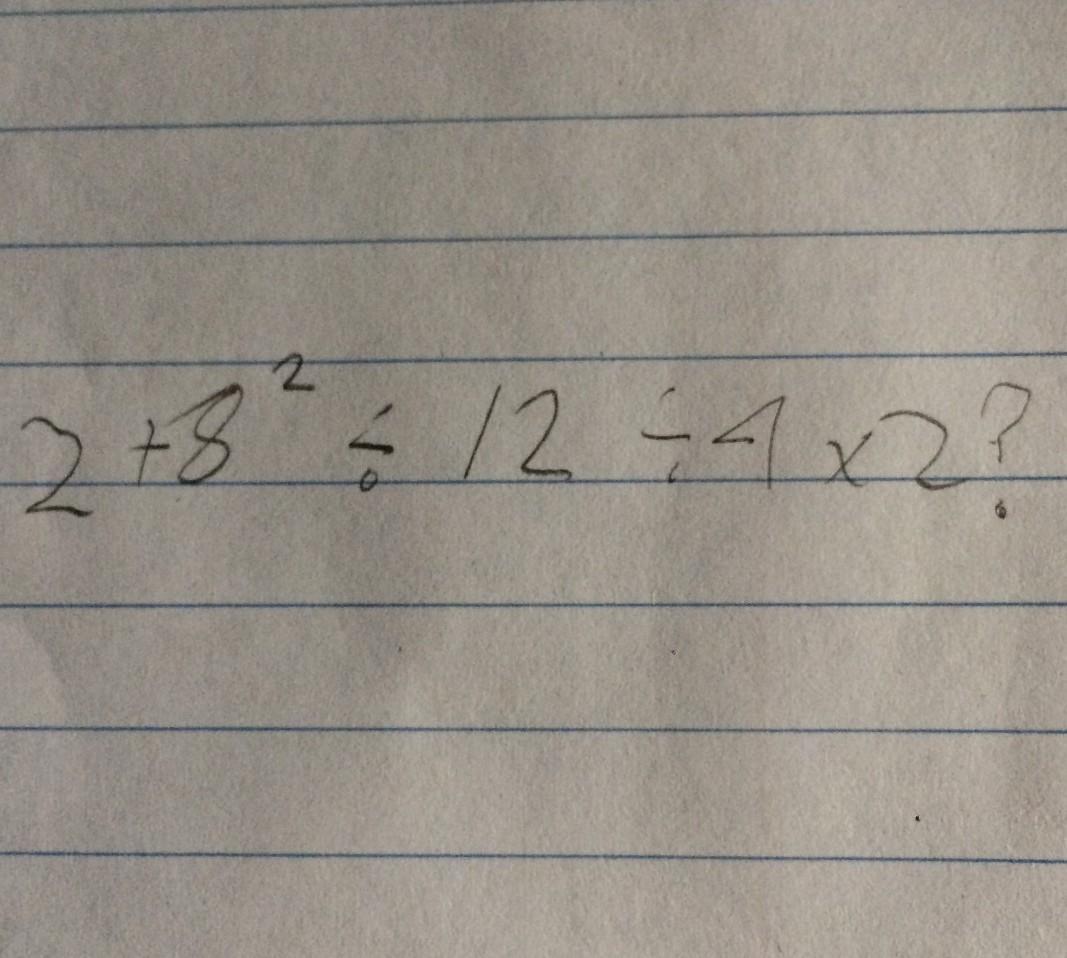 2+8² ÷ 12 ÷ 4 x 2?